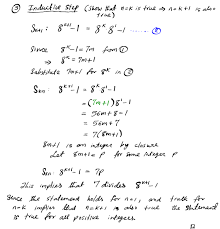 ③ Inductive Step (Show that n=k is true ⇒ n=k+1 is also true)
Sk+1: 8^(k+1) - 1 = 8^k 8^1 - 1 ②
Since 8^k - 1 = 7m from ①
⇒ 8^k = 7m+1
Substitute 7m+1 for 8^k in ②
Sk+1: 8^(k+1) - 1 = 8^k 8^1 - 1
= (7m+1) 8^1 - 1
= 56m + 8 - 1
= 56m + 7
= 7(8m+1)
8m+1 is an integer by closure
Let 8m+1 = p for some integer p
Sk+1: 8^(k+1) - 1 = 7p
This implies that 7 divides 8^(k+1) - 1
Since the statement holds for n=1, and truth for
n=k implies that n=k+1 is also true the statement
is true for all positive integers.